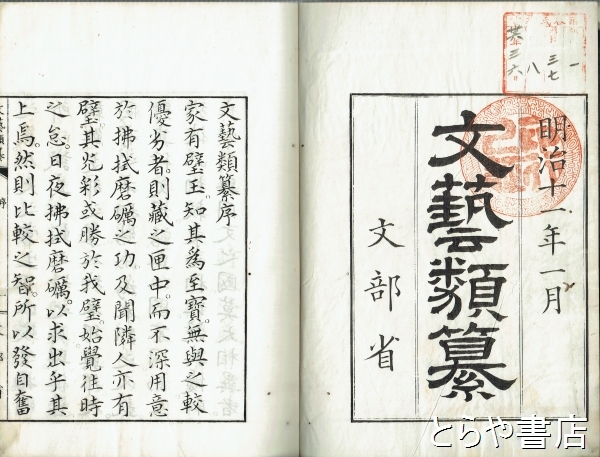 明治十一年一月
文藝類纂
文部省
文藝類纂序
家有璧玉知其爲至寶無與之較
優劣者則藏之匣中而不深用意
於拂拭磨礪之功及聞隣人亦有
璧其光彩或勝於我璧始覺往時
之怠日夜拂拭磨礪以求出乎其
上焉然則比較之智所以發自奮
文藝類纂
序
一
三七
八
三六
とらや書店